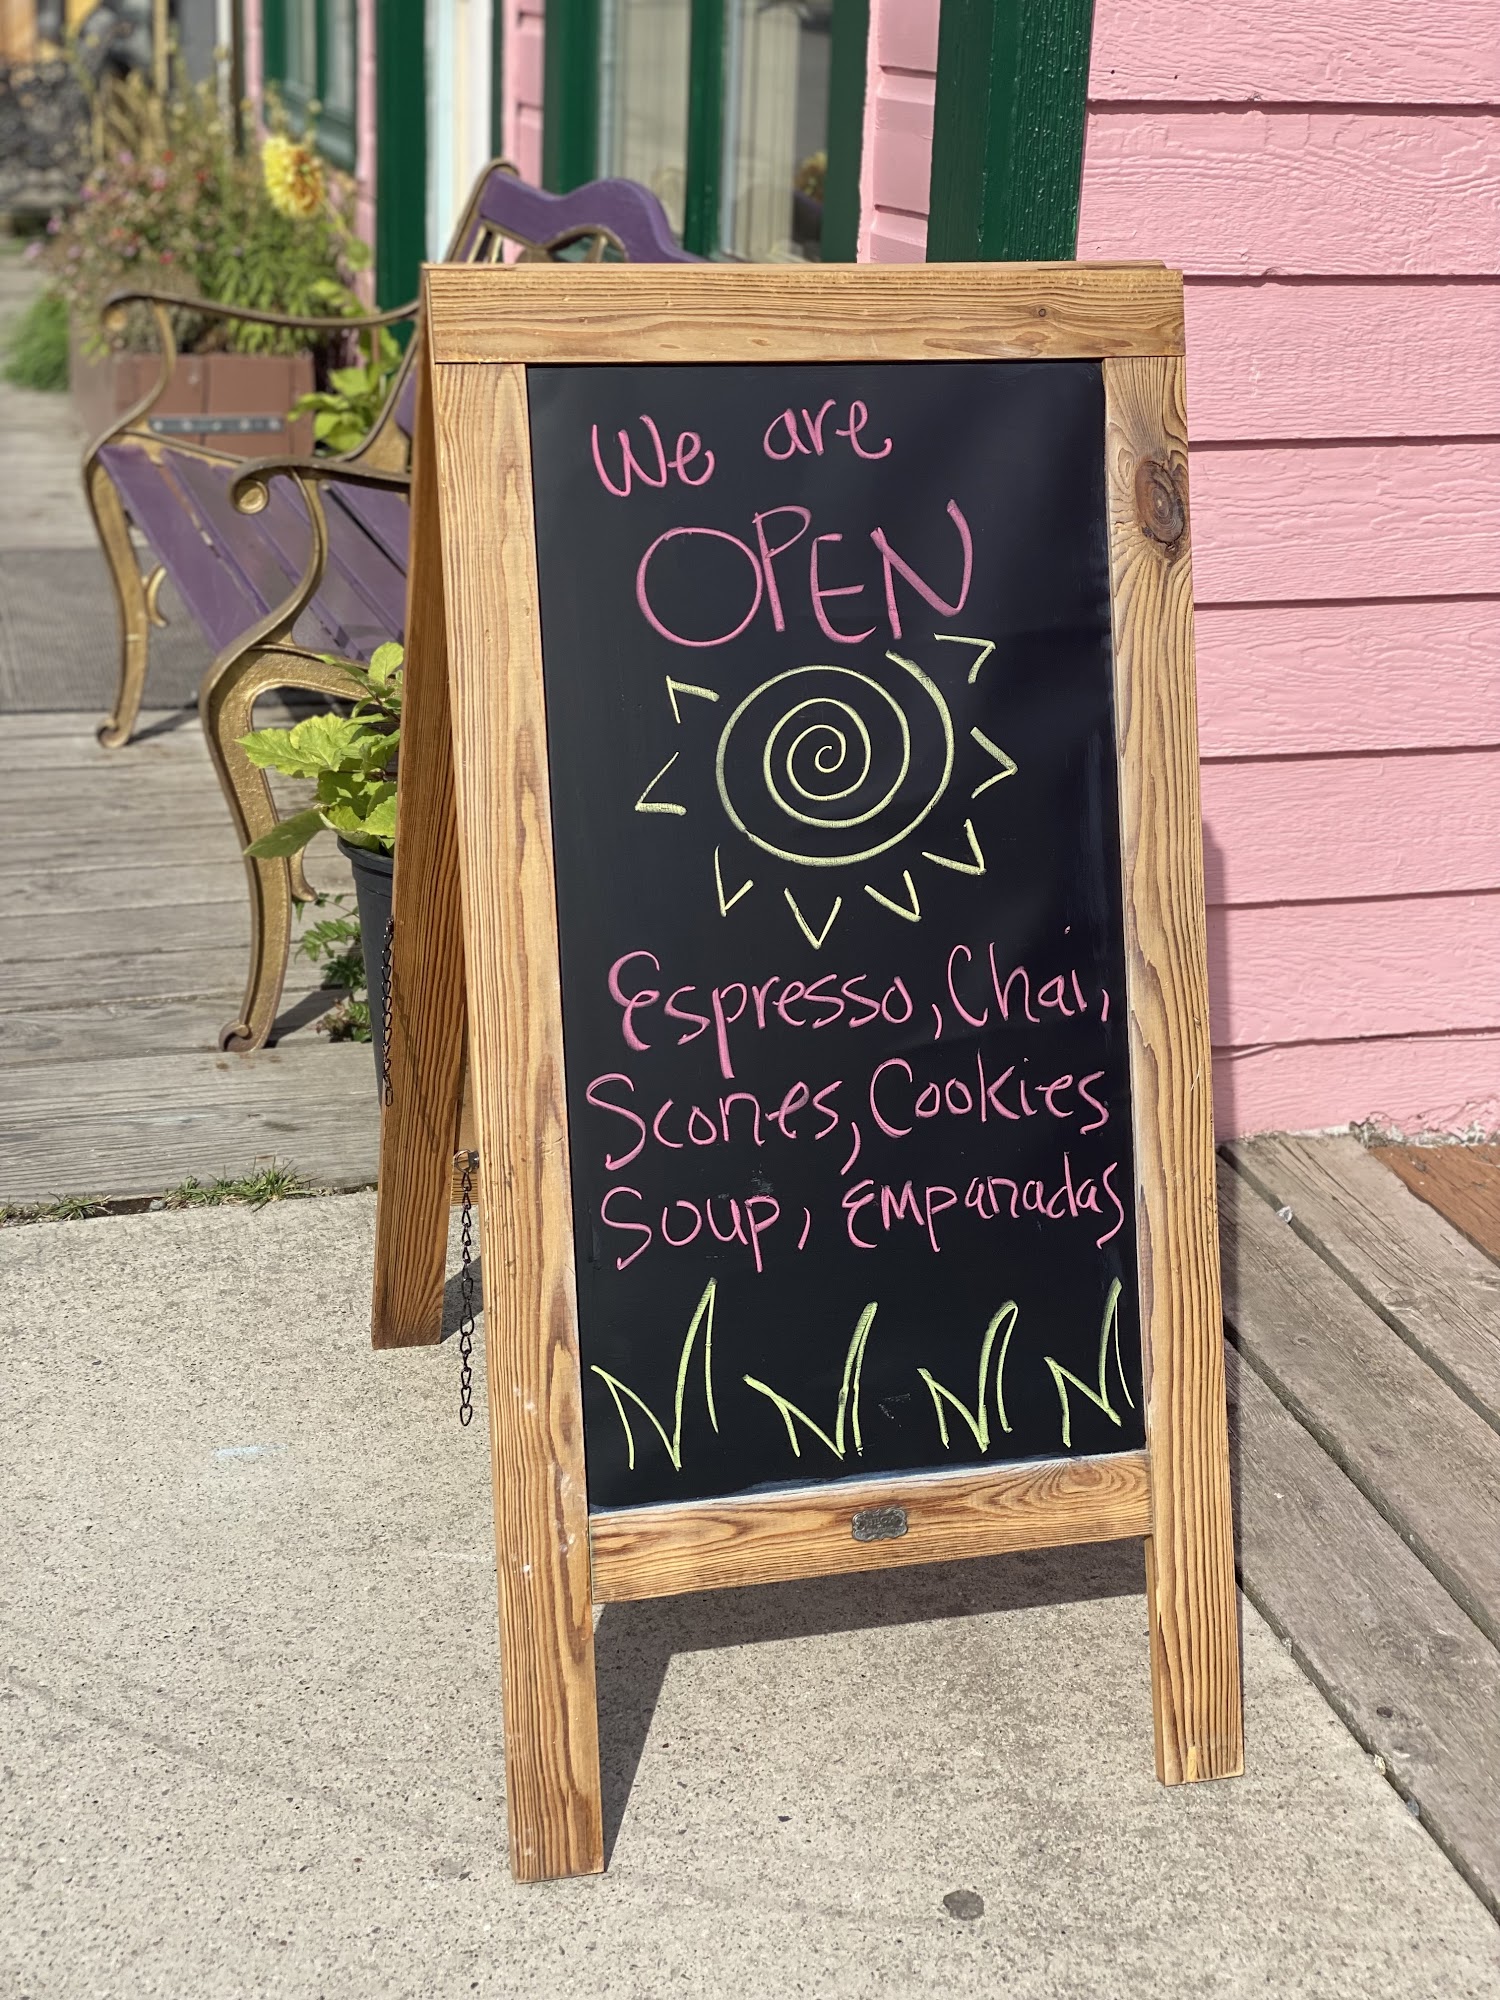 We are
OPEN
Espresso, Chai,
Scones, Cookies
Soup, Empanadas